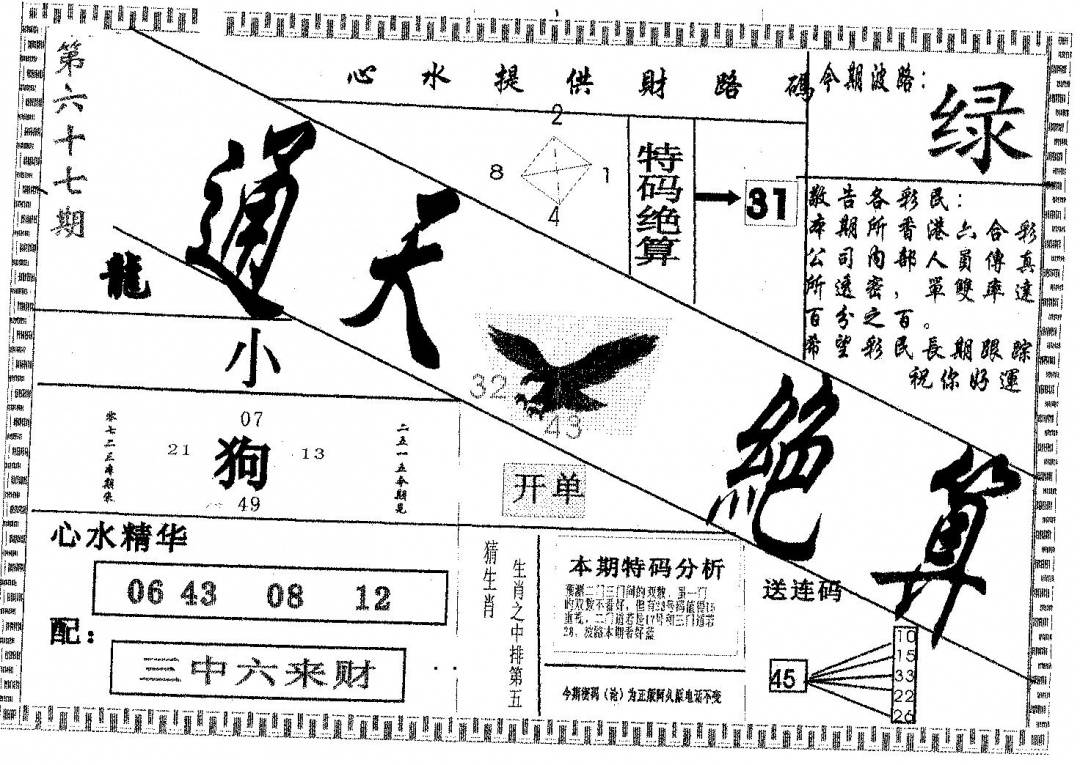 第六十七期
心水提供財路碼
今期波路：
绿
通天絕算
龍
2
8
1
4
特码绝算
31
敬告各彩民：
本期所香港六合彩
公司內部人員傳真
所透密，單雙率達
百分之百。
希望彩民長期跟踪
祝你好運
小
32
43
开单
零七二三本期来
07
21
狗
13
49
二五一五今期见
心水精华
06 43 08 12
配：
三中六来财
猜生肖
生肖之中排第五
本期特码分析
今期密码（论）为正版阿久版电话不变
送连码
45
10
15
33
22
26